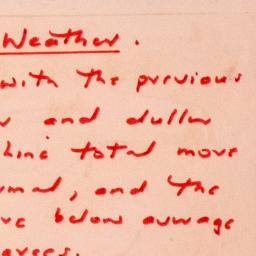 Weather.
with the previous
and duller
hine total move
rmal, and the
ve below average